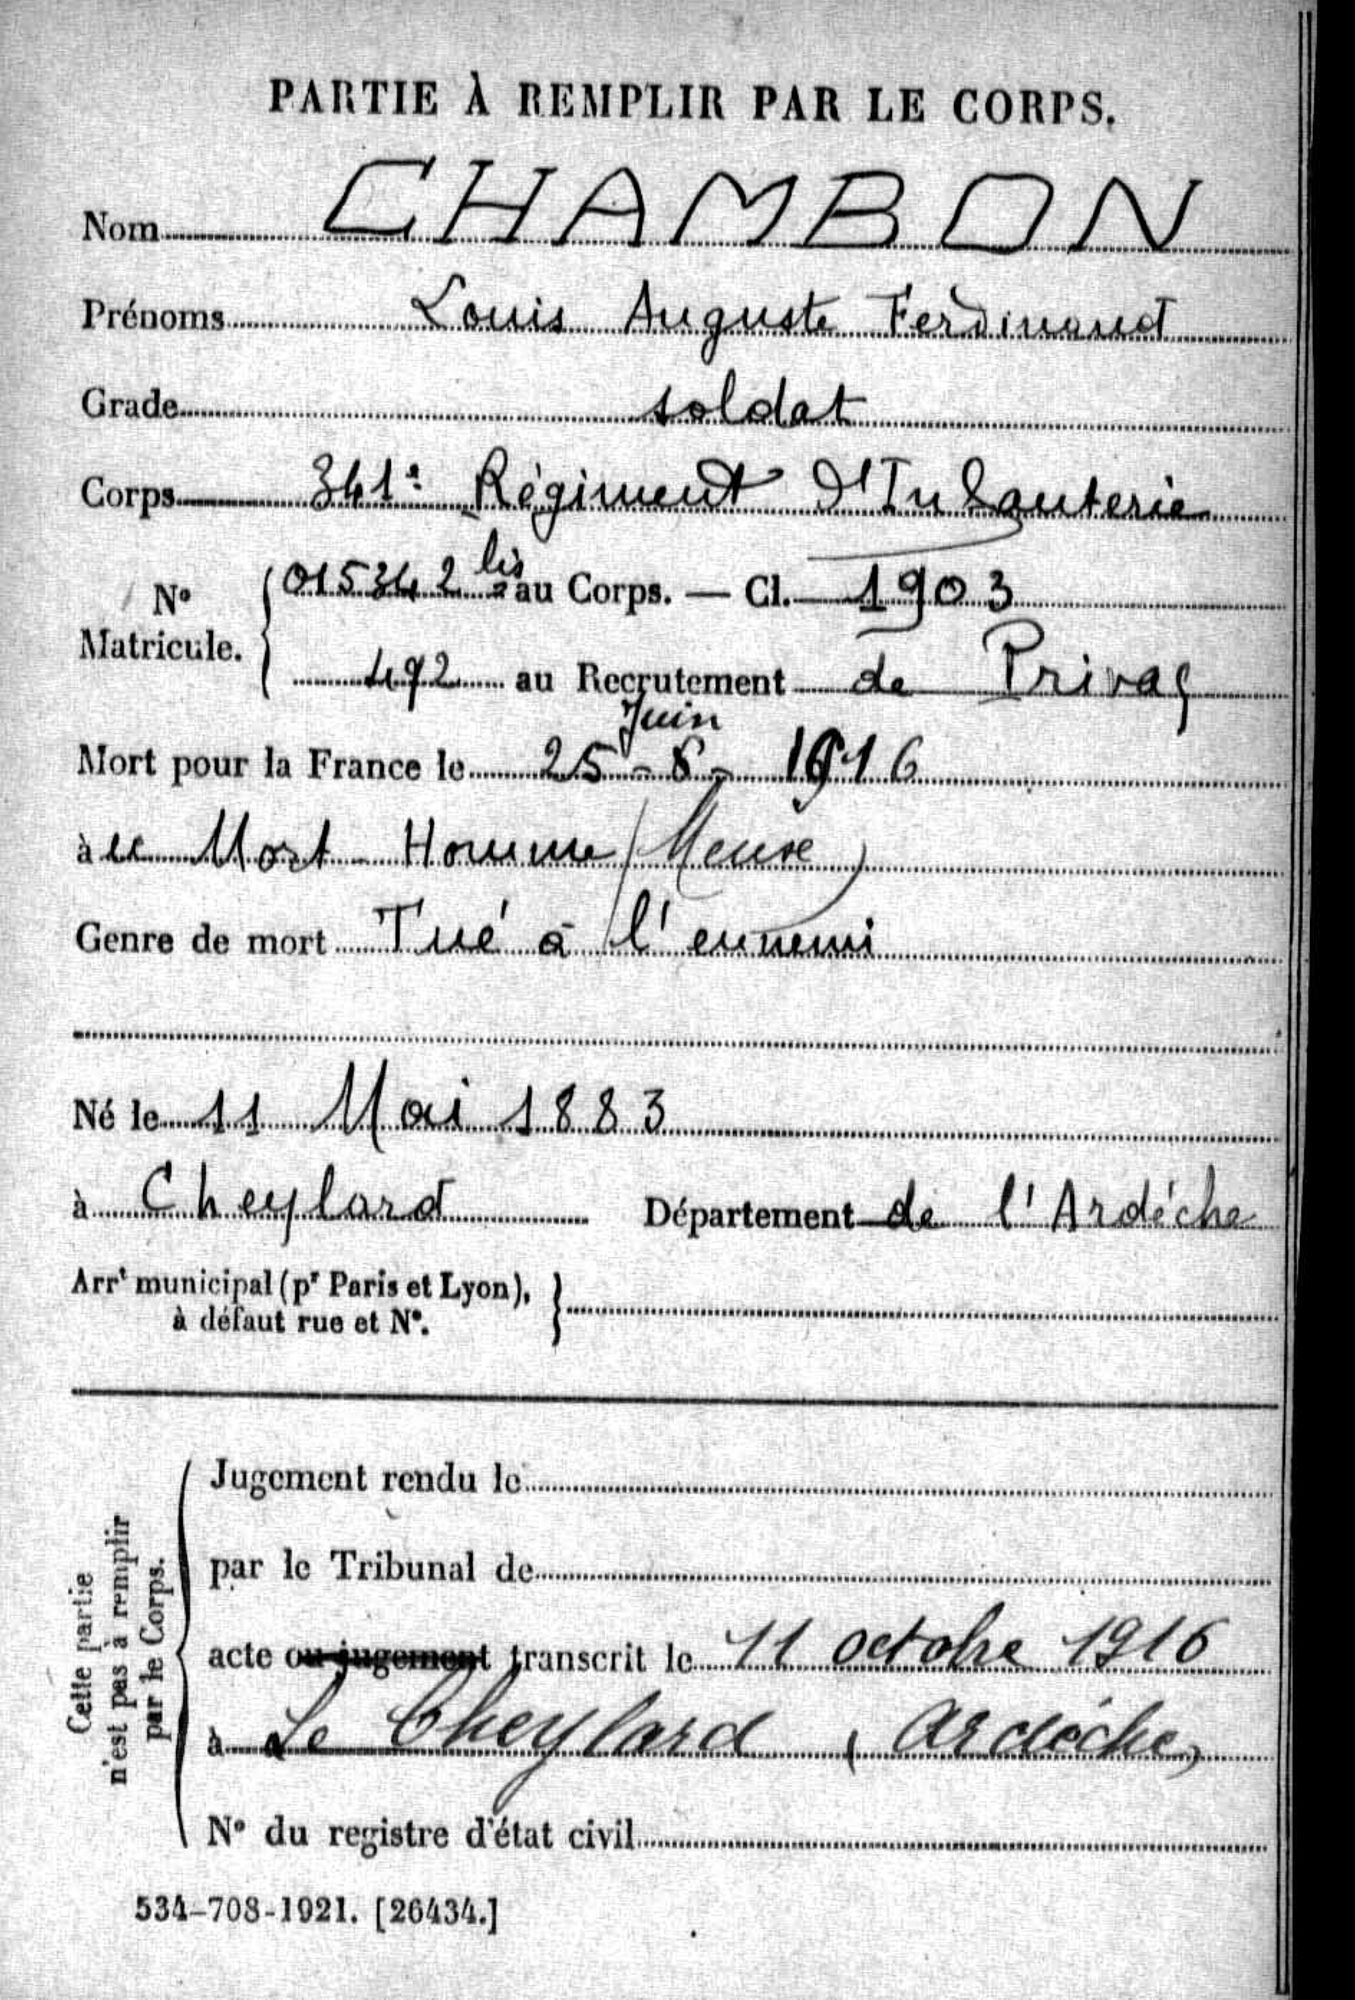 PARTIE À REMPLIR PAR LE CORPS.
Nom CHAMBON
Prénoms Louis Auguste Ferdinand
Grade soldat
Corps 341e Régiment d'Infanterie
No Matricule. 015342 bis au Corps. — Cl. 1903
492 au Recrutement de Privas
Juin
Mort pour la France le 25 - 6 - 1916
à le Mort Homme (Meuse)
Genre de mort Tué à l'ennemi
Né le 11 Mai 1883
à Cheylard Département de l'Ardèche
Arrt municipal (pr Paris et Lyon),
à défaut rue et No.
Cette partie
n'est pas à remplir
par le Corps.
Jugement rendu le
par le Tribunal de
acte ou jugement transcrit le 11 octobre 1916
à Le Cheylard (Ardèche)
No du registre d'état civil
534-708-1921. [26434.]